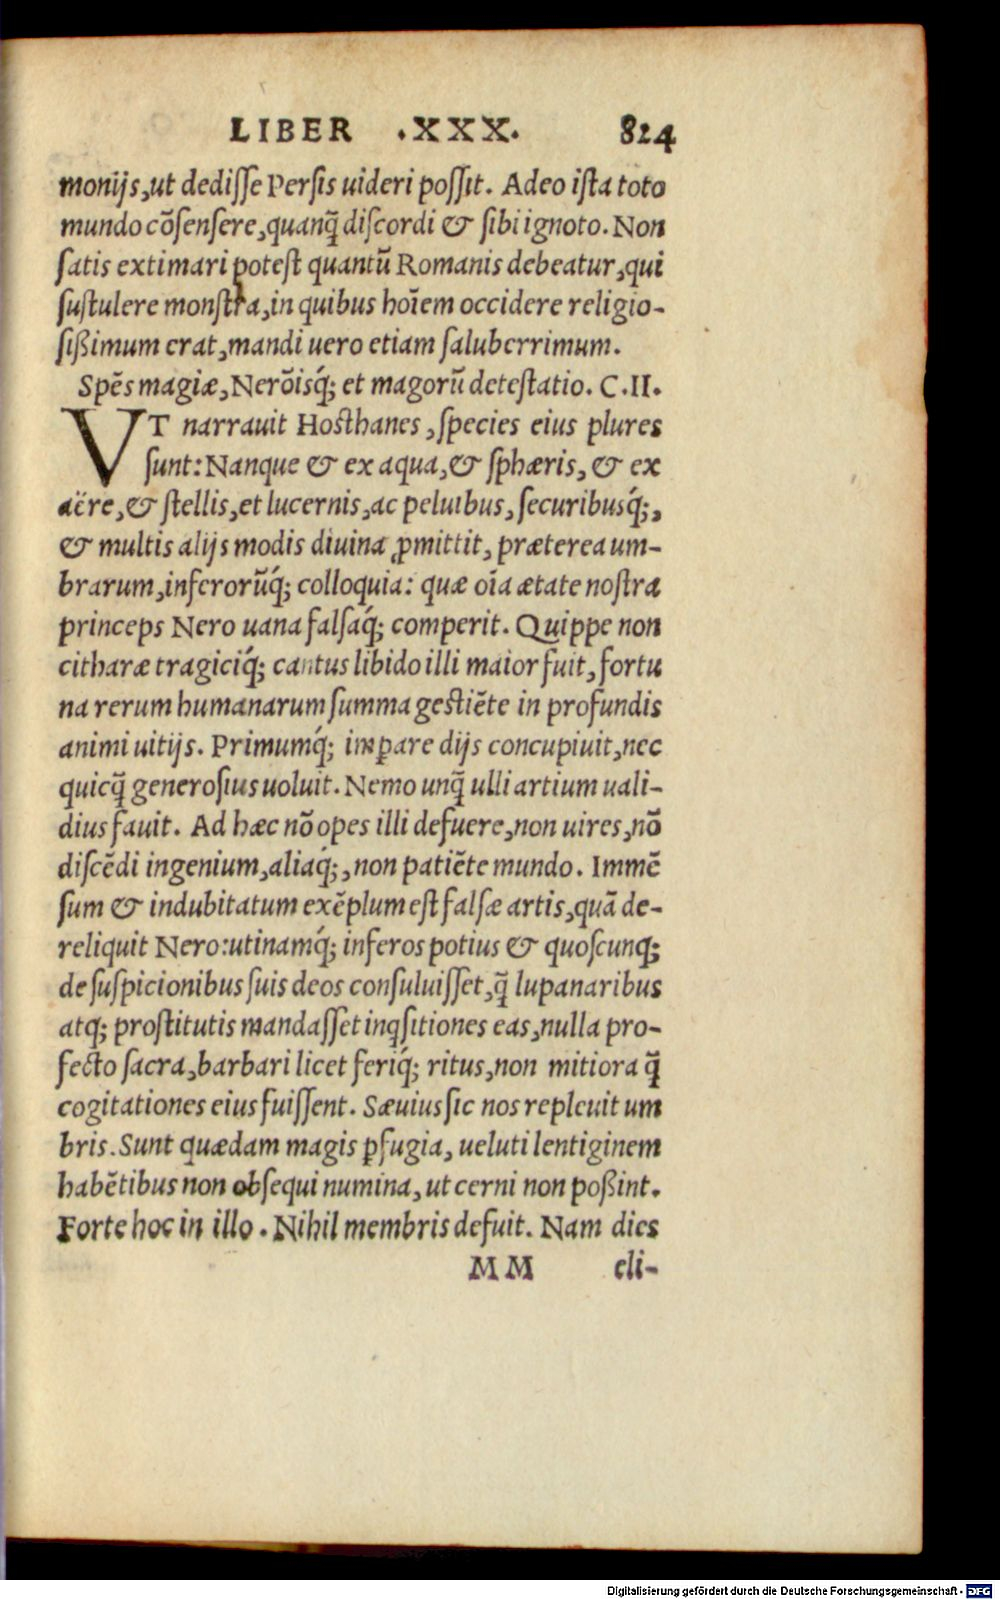 LIBER .XXX. 824
monijs,ut dedisse Persis uideri possit. Adeo ista toto
mundo cōsensere,quanq̃ discordi & sibi ignoto. Non
satis extimari potest quantũ Romanis debeatur,qui
sustulere monstra,in quibus hoĩem occidere religio-
sißimum erat,mandi uero etiam saluberrimum.
Spẽs magiæ,Nerõisq́; et magorũ detestatio. C.II.
VT narrauit Hosthanes,species eius plures
sunt:Nanque & ex aqua,& sphæris,& ex
aëre,& stellis,et lucernis,ac peluibus,securibusq́;,
& multis alijs modis diuina ꝓmittit, præterea um-
brarum,inferorũq́; colloquia: quæ oĩa ætate nostra
princeps Nero uana falsaq́; comperit. Quippe non
citharæ tragiciq́; cantus libido illi maior fuit,fortu
na rerum humanarum summa gestiẽte in profundis
animi uitijs. Primumq́; imꝑare dijs concupiuit,nec
quicq̃ generosius uoluit. Nemo unq̃ ulli artium uali-
dius fauit. Ad hæc nõ opes illi defuere,non uires,nõ
discẽdi ingenium,aliaq́;,non patiẽte mundo. Immẽ
sum & indubitatum exẽplum est falsæ artis,quã de-
reliquit Nero:utinamq́; inferos potius & quoscunq;
de suspicionibus suis deos consuluisset,q̃ lupanaribus
atq; prostitutis mandasset inꝗsitiones eas,nulla pro-
fecto sacra,barbari licet feriq́; ritus,non mitiora q̃
cogitationes eius fuissent. Sæuius sic nos repleuit um
bris. Sunt quædam magis ꝑfugia, ueluti lentiginem
habẽtibus non obsequi numina, ut cerni non poßint.
Forte hoc in illo. Nihil membris defuit. Nam dies
MM eli-
Digitalisierung gefördert durch die Deutsche Forschungsgemeinschaft - DFG